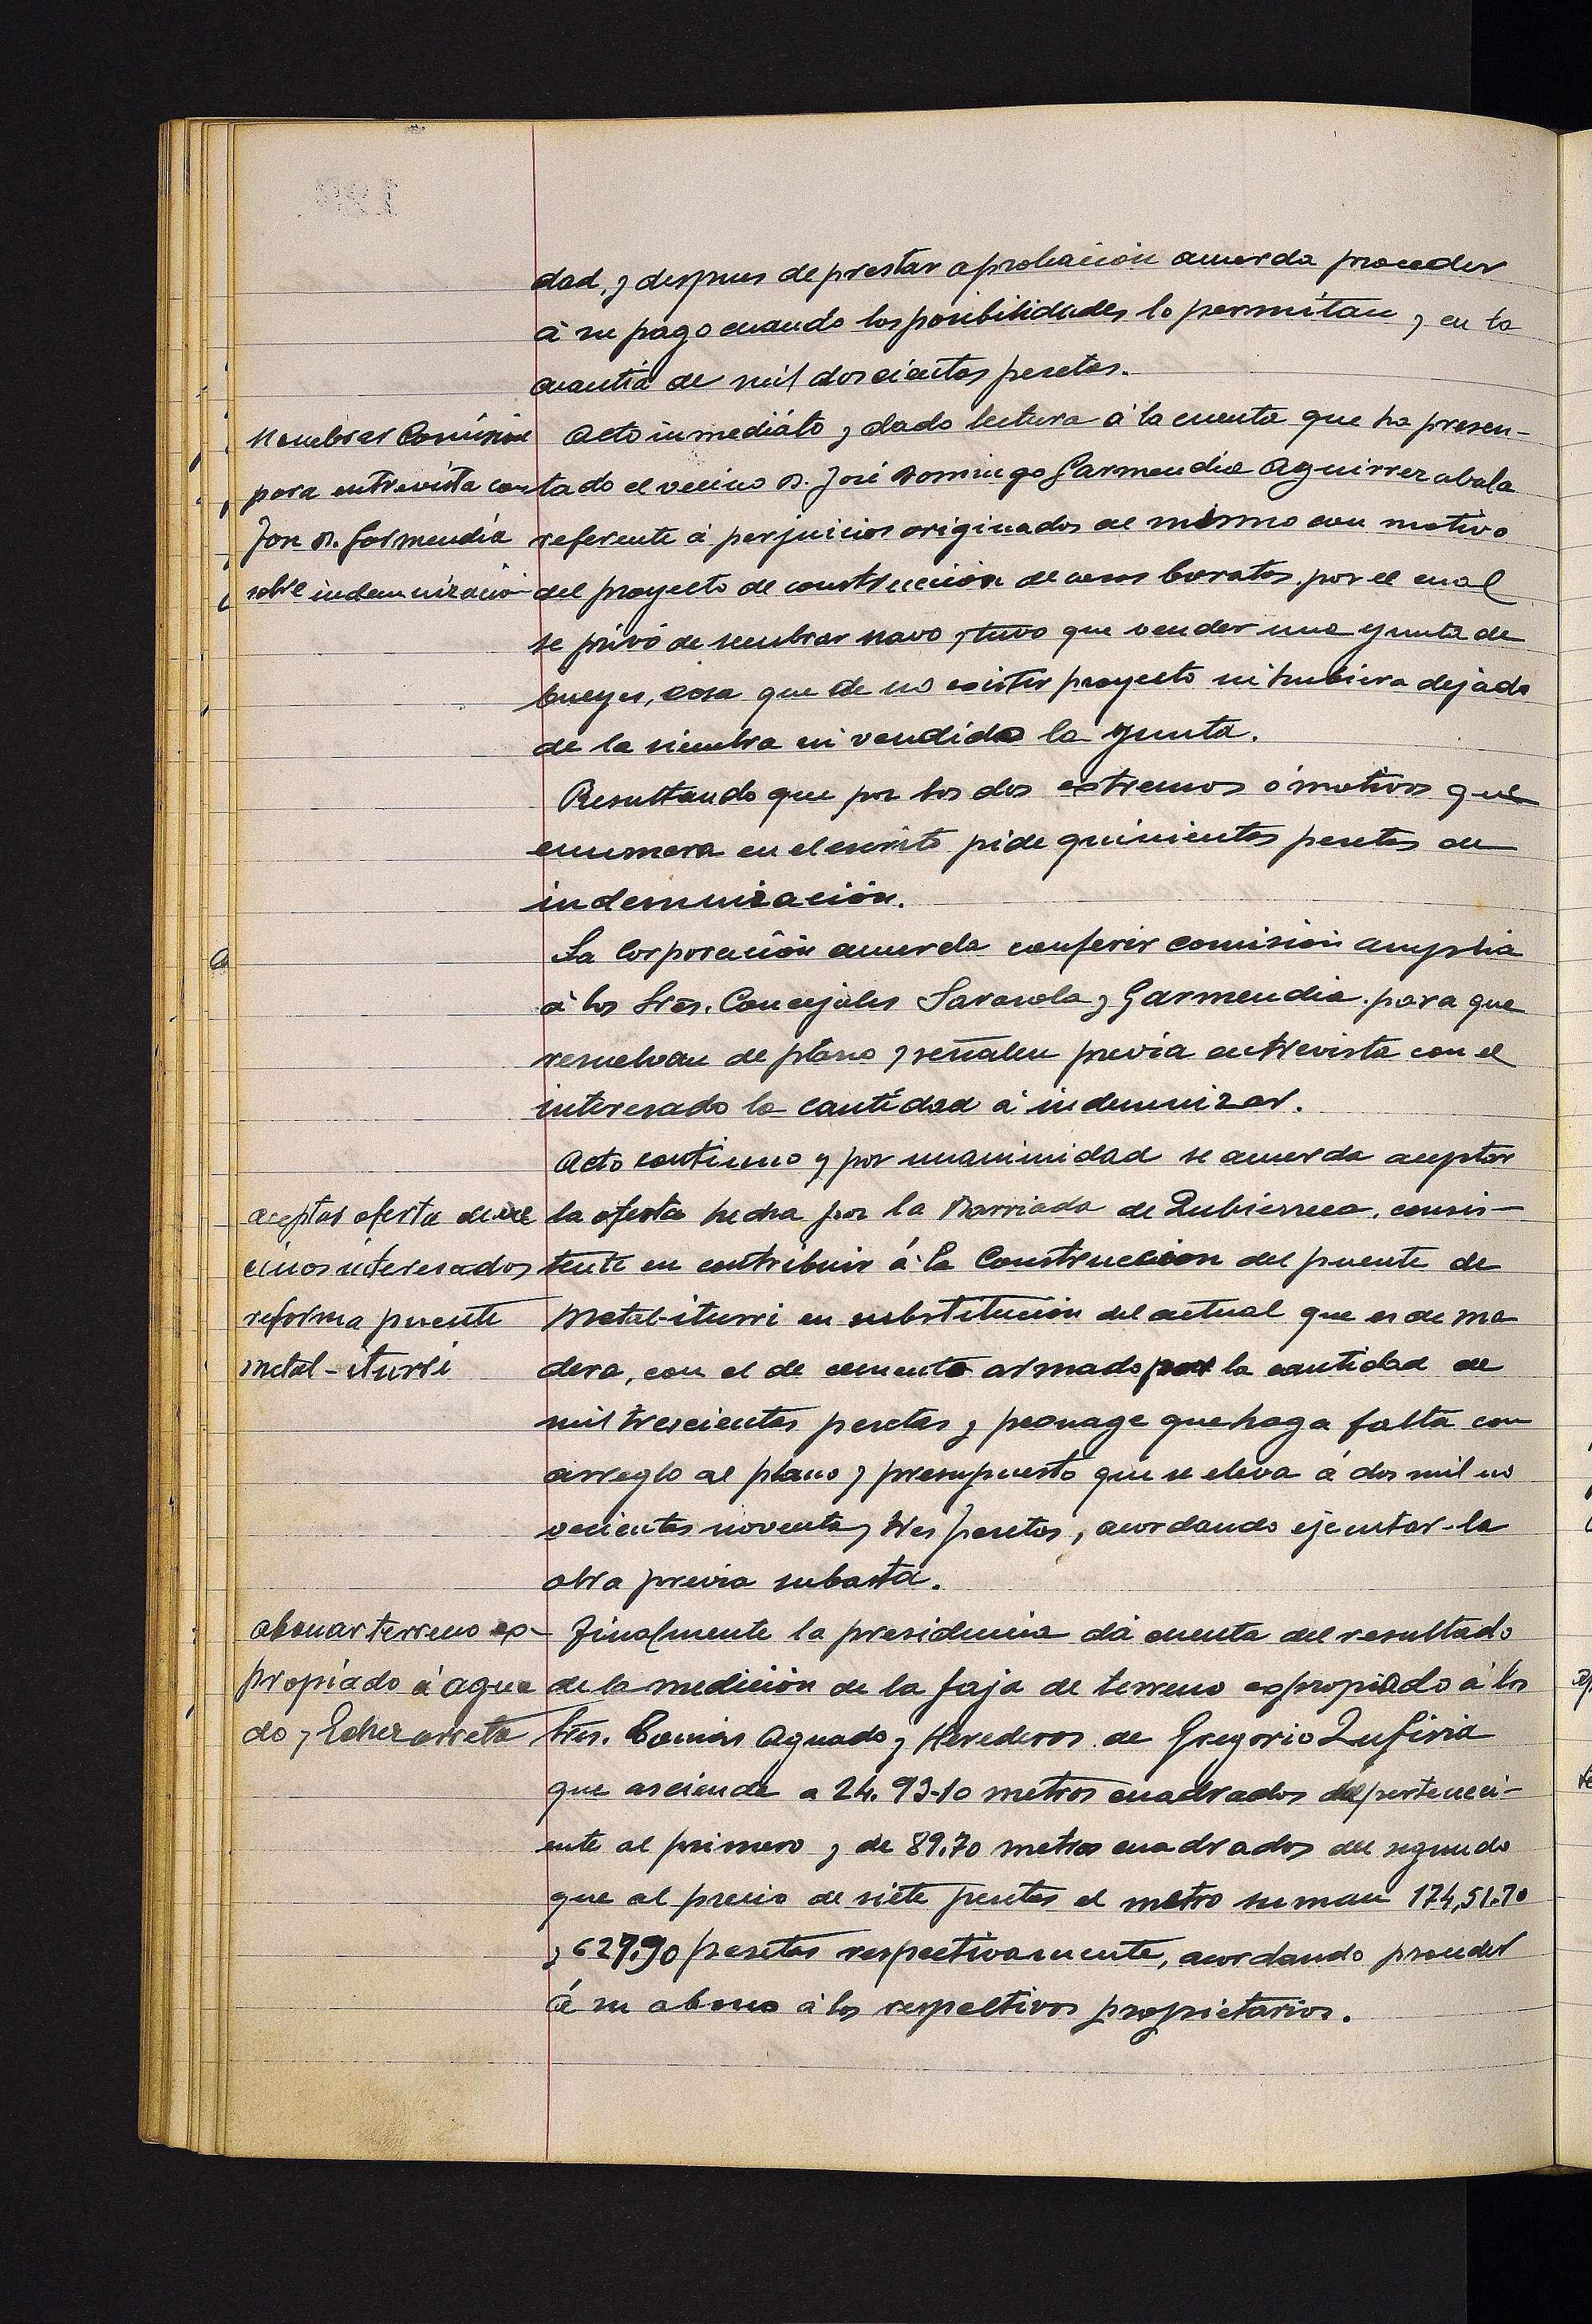 dad, y despues de prestar aprobación acuerda proceder
á su pago cuando las posibilidades lo permitan y en la
cuantia de mil doscientas pesetas.
Nombrar Comisión
para entrevista con
José D. Garmendia
sobre indemnización
Acto inmediáto y dada lectura á la cuenta que ha presen-
tado el vecino D. José Domingo Garmendia Aguirrezabala
referente á perjuicios originados al mismo con motivo
del proyecto de construcción de casas baratas, por el cual
se privó de sembrar navo y tuvo que vender una yunta de
bueyes, cosa que de no existir proyecto ni hubiera dejado
de la siembra ni vendido la yunta.
Resultando que por los dos extremos ó motivos que
enumera en el escrito pide quinientas pesetas de
indemnización.
La Corporación acuerda conferir comisión amplia
á los Sres. Concejales Sarasola y Garmendia para que
resuelvan de plano y señalen previa entrevista con el
interesado la cantidad á indemnizar.
Acto contínuo y por unanimidad se acuerda aceptar
aceptar oferta de ve
cinos interesados
reforma puente
metal-iturri
la oferta hecha por la Barriada de Zubierreca, consis-
tente en contribuir á la Construccion del puente de
Metal-iturri en substitución del actual que es de ma
dera, con el de cemento armado por la cantidad de
mil trescientas pesetas y peonage que haga falta con
arreglo al plano y presupuesto que se eleva á dos mil no
vecientas noventa y tres pesetas, acordando ejecutar la
obra previa subasta.
abonar terreno ex-
propiado á agua
do y Echezarreta
Finalmente la presidencia dá cuenta del resultado
de la medición de la faja de terreno expropiado á los
Sres. Aguado y Herederos de Gregorio Zufiria
que asciende a 24.93-10 metros cuadrados perteneci-
ente al primero y de 89.70 metros cuadrados del segundo
que al precio de siete pesetas el metro suman 174,51.70
y 627.90 pesetas respectivamente, acordando proceder
á su abono á los respectivos propietarios.